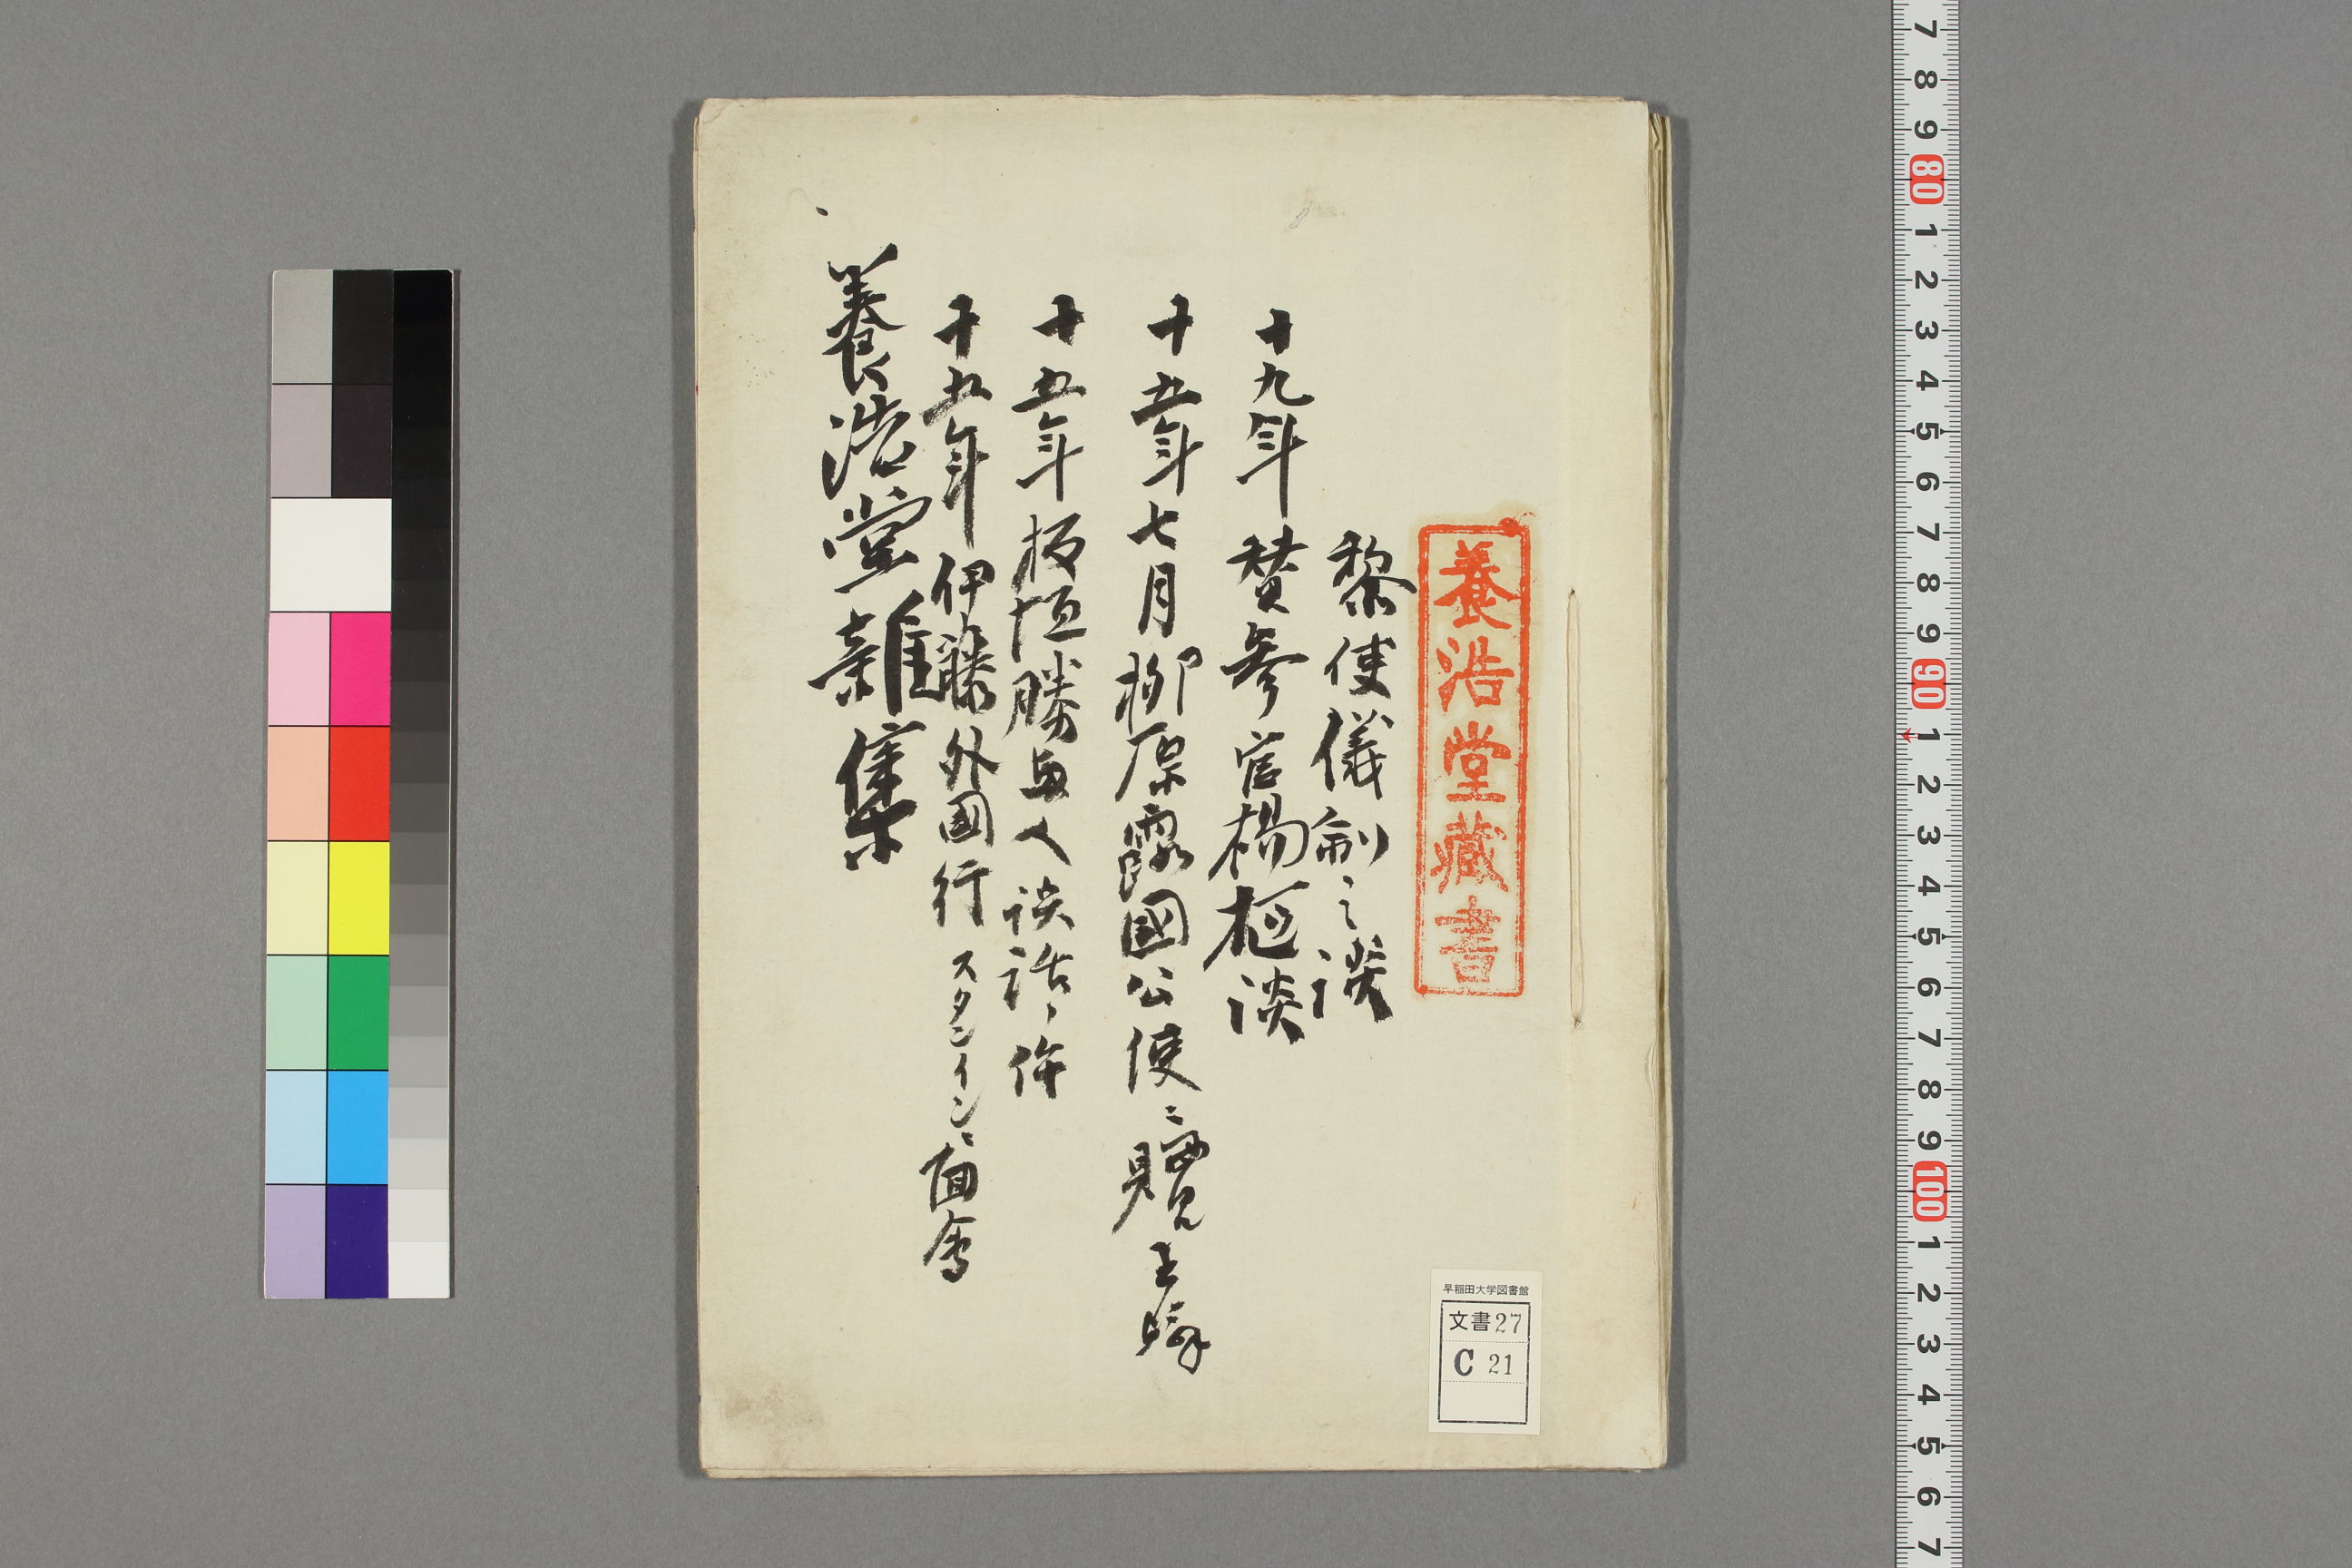 養浩堂藏書
黎使儀制之談
十九年 賛参官楊樞談
十五年七月柳原露國公使ニ贐見
十五年板垣勝与人談話ノ件
十五年伊藤外國行スタンインニ面会
養浩堂雜集
早稲田大学図書館
文書27
C 21
7 8 9 80 1 2 3 4 5 6 7 8 9 90 1 2 3 4 5 6 7 8 9 100 1 2 3 4 5 6 7